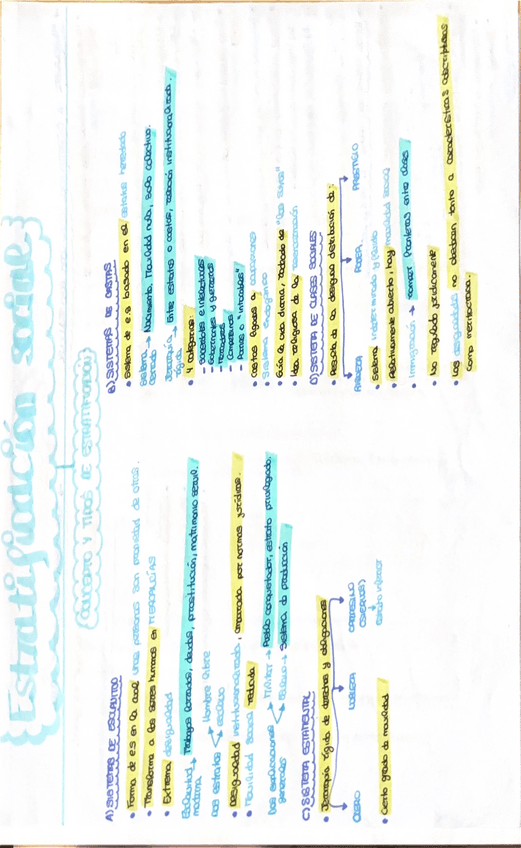 Estratificación social
(CONCEPTO Y TIPOS DE ESTRATIFICACIÓN)
A) SISTEMAS DE ESCLAVITUD
• Forma de e.s en la cual unas personas son propiedad de otras.
• Transforma a los seres humanos en MERCANCÍAS
• Extrema desigualdad
Esclavitud moderna → Trabajos forzados, deudas, prostitución, matrimonio servil.
Dos estratos → Hombre libre
→ esclavo
• Desigualdad institucionalizada, amparada por normas jurídicas.
• Movilidad social reducida
Dos explicaciones generales → Militar → Pueblo conquistador, estrato privilegiado.
→ Sistema de producción
C) SISTEMA ESTAMENTAL
• Jerarquía rígida de derechos y obligaciones
CLERO NOBLEZA CAMPESINO (SIERVOS)
↓
Estrato inferior
• Cierto grado de movilidad
B) SISTEMAS DE CASTAS
• Sistema de e.s basado en el estatus heredado
Sistema cerrado → Nacimiento, Movilidad nula, Sello colectivo.
Jerarquía rígida → Entre estratos o castas, relación institucionalizada.
• 4 categorías:
- Sacerdotes e intelectuales
- Gobernantes y guerreros
- Mercaderes
- Campesinos
- Parias o "intocables"
• Castas ligadas a
• Sistema endogámico
• Idea religiosa de la reencarnación
D) SISTEMA DE CLASES SOCIALES
• Resulta de la desigual distribución de:
RIQUEZA PODER PRESTIGIO
• Sistema indeterminado y abierto
• Relativamente abierto, hay movilidad social
• Inmigración → romper fronteras entre clases
• No regulado jurídicamente
• Las desigualdades no obedecen tanto a características adscriptivas como meritocracia.